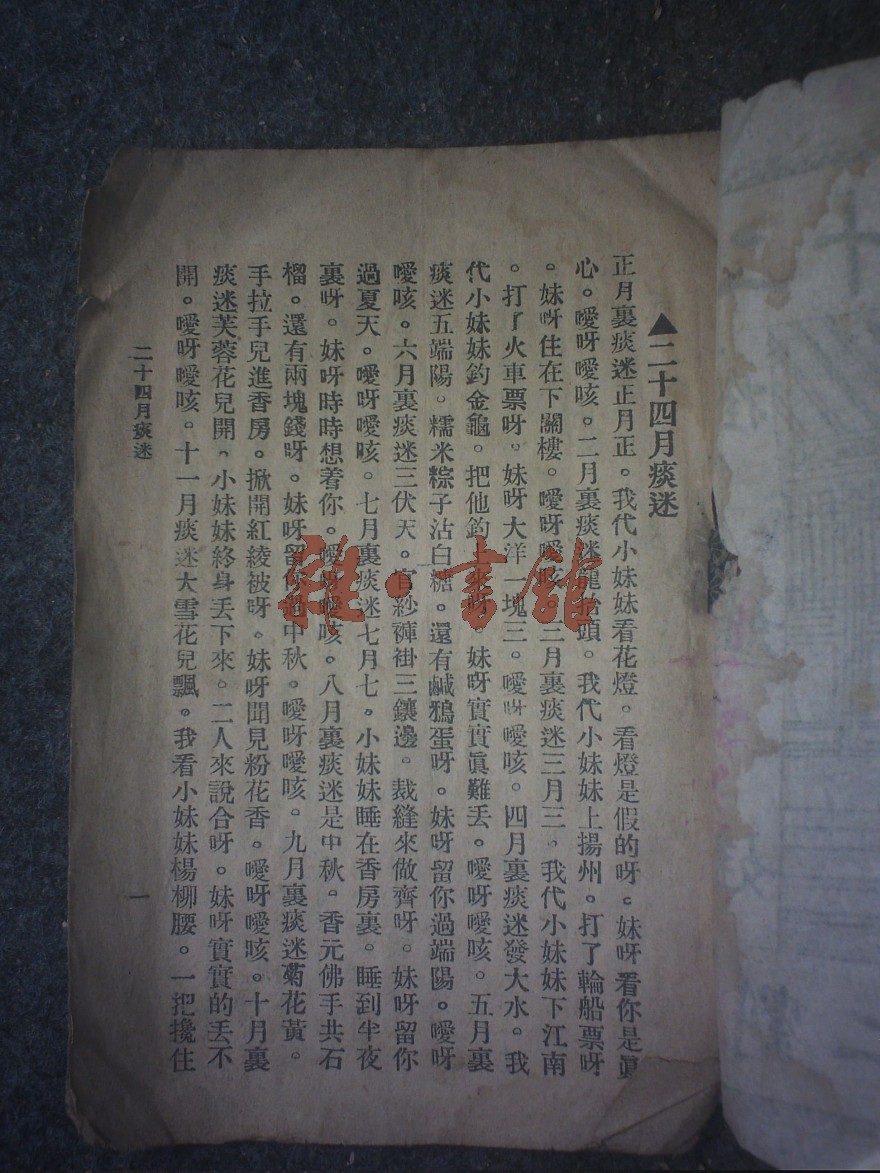 ▲二十四月痰迷
正月裏痰迷正月正。我代小妹妹看花燈。看燈是假的呀。妹呀看你是眞
心。噯呀噯咳。二月裏痰迷龍抬頭。我代小妹妹上揚州。打了輪船票呀
。妹呀住在下關樓。噯呀噯咳。三月裏痰迷三月三。我代小妹妹下江南
。打了火車票呀。妹呀大洋一塊三。噯呀噯咳。四月裏痰迷發大水。我
代小妹妹釣金龜。把他釣上來呀。妹呀實實眞難丟。噯呀噯咳。五月裏
痰迷五端陽。糯米粽子沾白糖。還有鹹鴉蛋呀。妹呀留你過端陽。噯呀
噯咳。六月裏痰迷三伏天。官紗褲褂三鑲邊。裁縫來做齊呀。妹呀留你
過夏天。噯呀噯咳。七月裏痰迷七月七。小妹妹睡在香房裏。睡到半夜
裏呀。妹呀時時想着你。噯呀噯咳。八月裏痰迷是中秋。香元佛手共石
榴。還有兩塊錢呀。妹呀留你過中秋。噯呀噯咳。九月裏痰迷菊花黃。
手拉手兒進香房。掀開紅綾被呀。妹呀聞見粉花香。噯呀噯咳。十月裏
痰迷芙蓉花兒開。小妹妹終身丟下來。二人來說合呀。妹呀實實的丟不
開。噯呀噯咳。十一月痰迷大雪花兒飄。我看小妹妹楊柳腰。一把攙住
二十四月痰迷
一
雜·書館